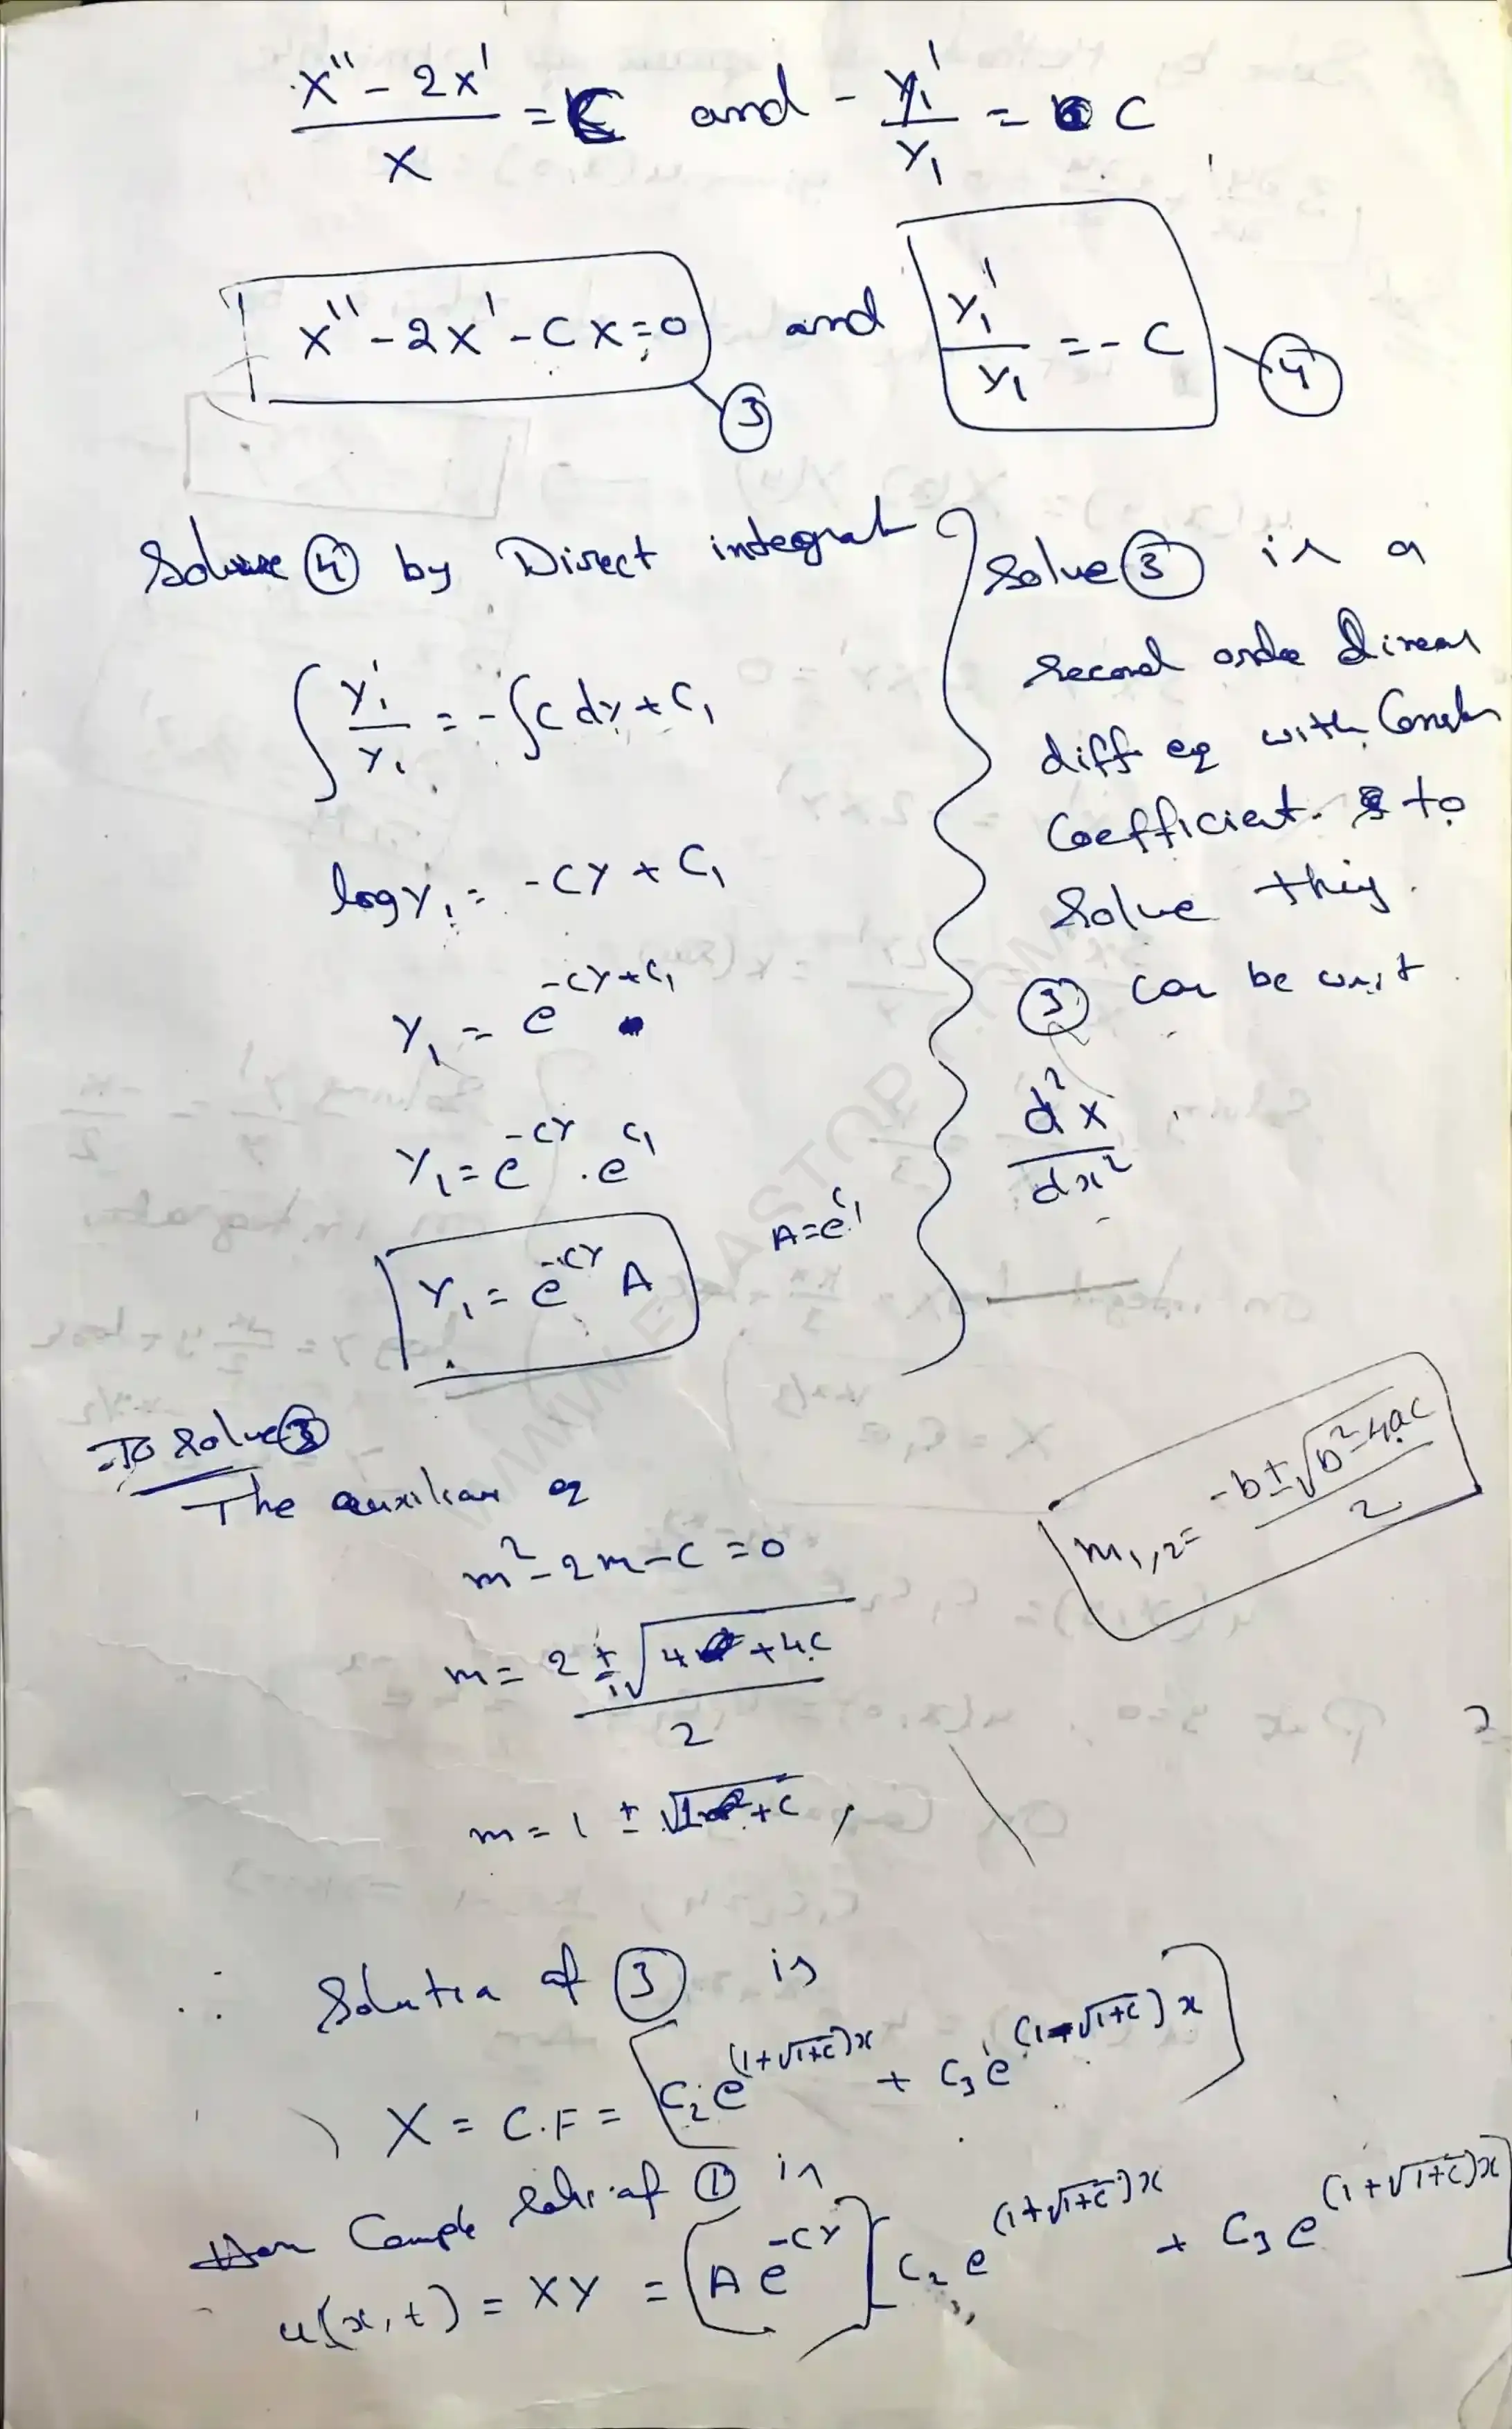 X'' - 2X' / X = C and - Y₁' / Y₁ = C
X'' - 2X' - CX = 0 and Y₁' / Y₁ = - C
③ ④
Solve ④ by Direct integrat
∫ Y₁' / Y₁ = - ∫ C dy + C₁
log Y₁ = - CY + C₁
Y₁ = e^(-CY + C₁)
Y₁ = e^(-CY) . e^(C₁)
A = e^(C₁)
Y₁ = e^(-CY) A
Solve ③ is a
second orde linear
diff eq with
coefficient. to
Solve this.
③ can be writ
d²X / dx²
To solve ③
The auxiliar eq
m² - 2m - C = 0
m = 2 ± √(4 + 4C) / 2
m = 1 ± √(1 + C),
m₁,₂ = -b ± √(b² - 4ac) / 2
∴ Solutia of ③ is
X = C.F = [C₂ e^((1+√(1+C))x) + C₃ e^((1-√(1+C))x)]
Comple Soln. of ① is
u(x,t) = XY = [A e^(-CY)] [C₂ e^((1+√(1+C))x) + C₃ e^((1+√(1+C))x)]